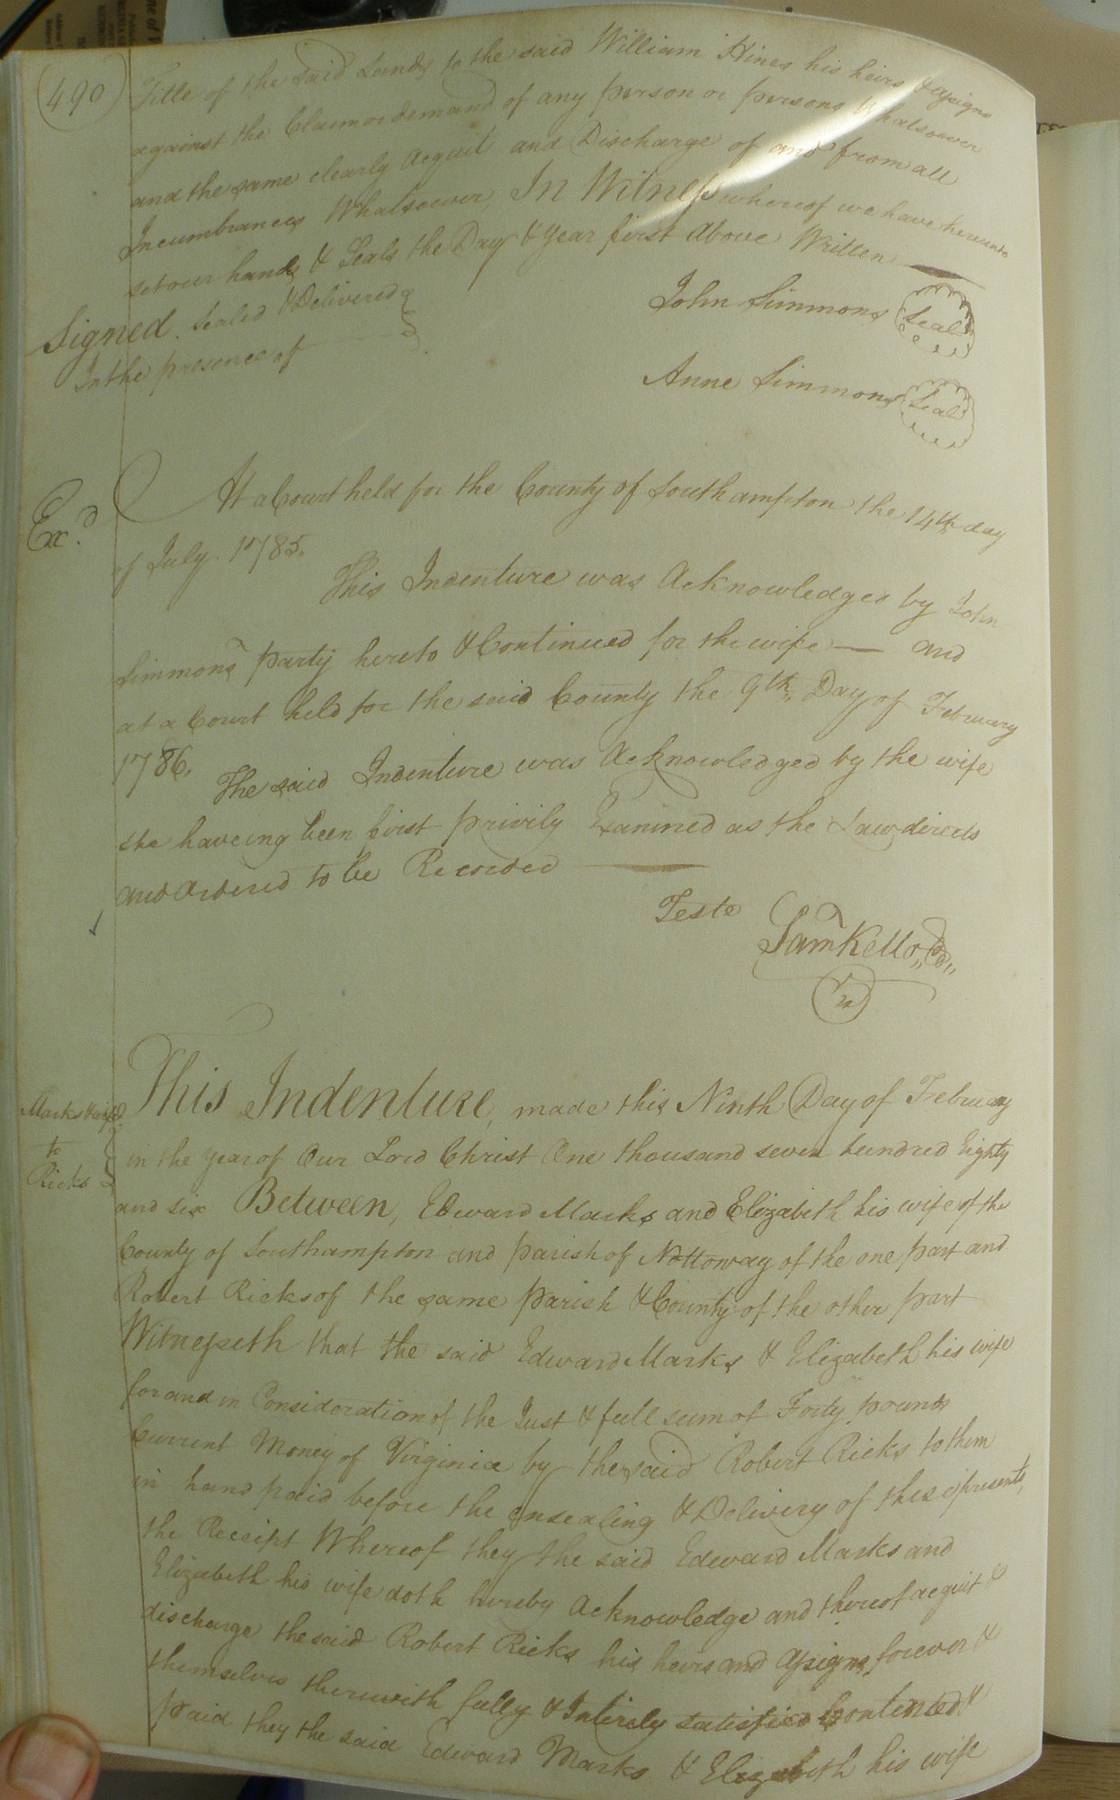 490
Title of the said Lands to the said William Hines his heirs & assigns
against the Claim or demand of any person or persons Whatsoever
and the same clearly Acquit and Discharge of and from all
Incumbrances Whatsoever, In Witness whereof we have hereunto
set our hands & Seals the Day & year first Above Written
Signed. Sealed & Delivered
In the presence of
John Simmons Seal
Anne Simmons Seal
Ex.d
At a Court held for the County of Southampton the 14th day
of July. 1785.
This Indenture was Acknowledged by John
Simmons party hereto & Continued for the wife — and
at a Court held for the said County the 9th Day of February
1786.
The said Indenture was Acknowledged by the wife
she haveing been first privily Examined as the Law directs
and Ordered to be Recorded
Teste
Sam Kello
Marks & wife
to
Ricks
This Indenture, made this Ninth Day of February
in the year of Our Lord Christ One thousand seven hundred Eighty
and six Between, Edward Marks and Elizabeth his wife of the
County of Southampton and parish of Nottoway of the one part and
Robert Ricks of the same parish & County of the other part
Witnesseth that the said Edward Marks & Elizabeth his wife
for and in Consideration of the Just & full sum of Forty pounds
Current Money of Virginia by the said Robert Ricks to them
in hand paid before the ensealing & Delivery of these presents,
the Receipt Whereof they the said Edward Marks and
Elizabeth his wife doth hereby Acknowledge and thereof acquit &
discharge the said Robert Ricks his heirs and Assigns, forever &
themselves therewith fully & Intirely satisfied Contented &
paid they the said Edward Marks & Elizabeth his wife